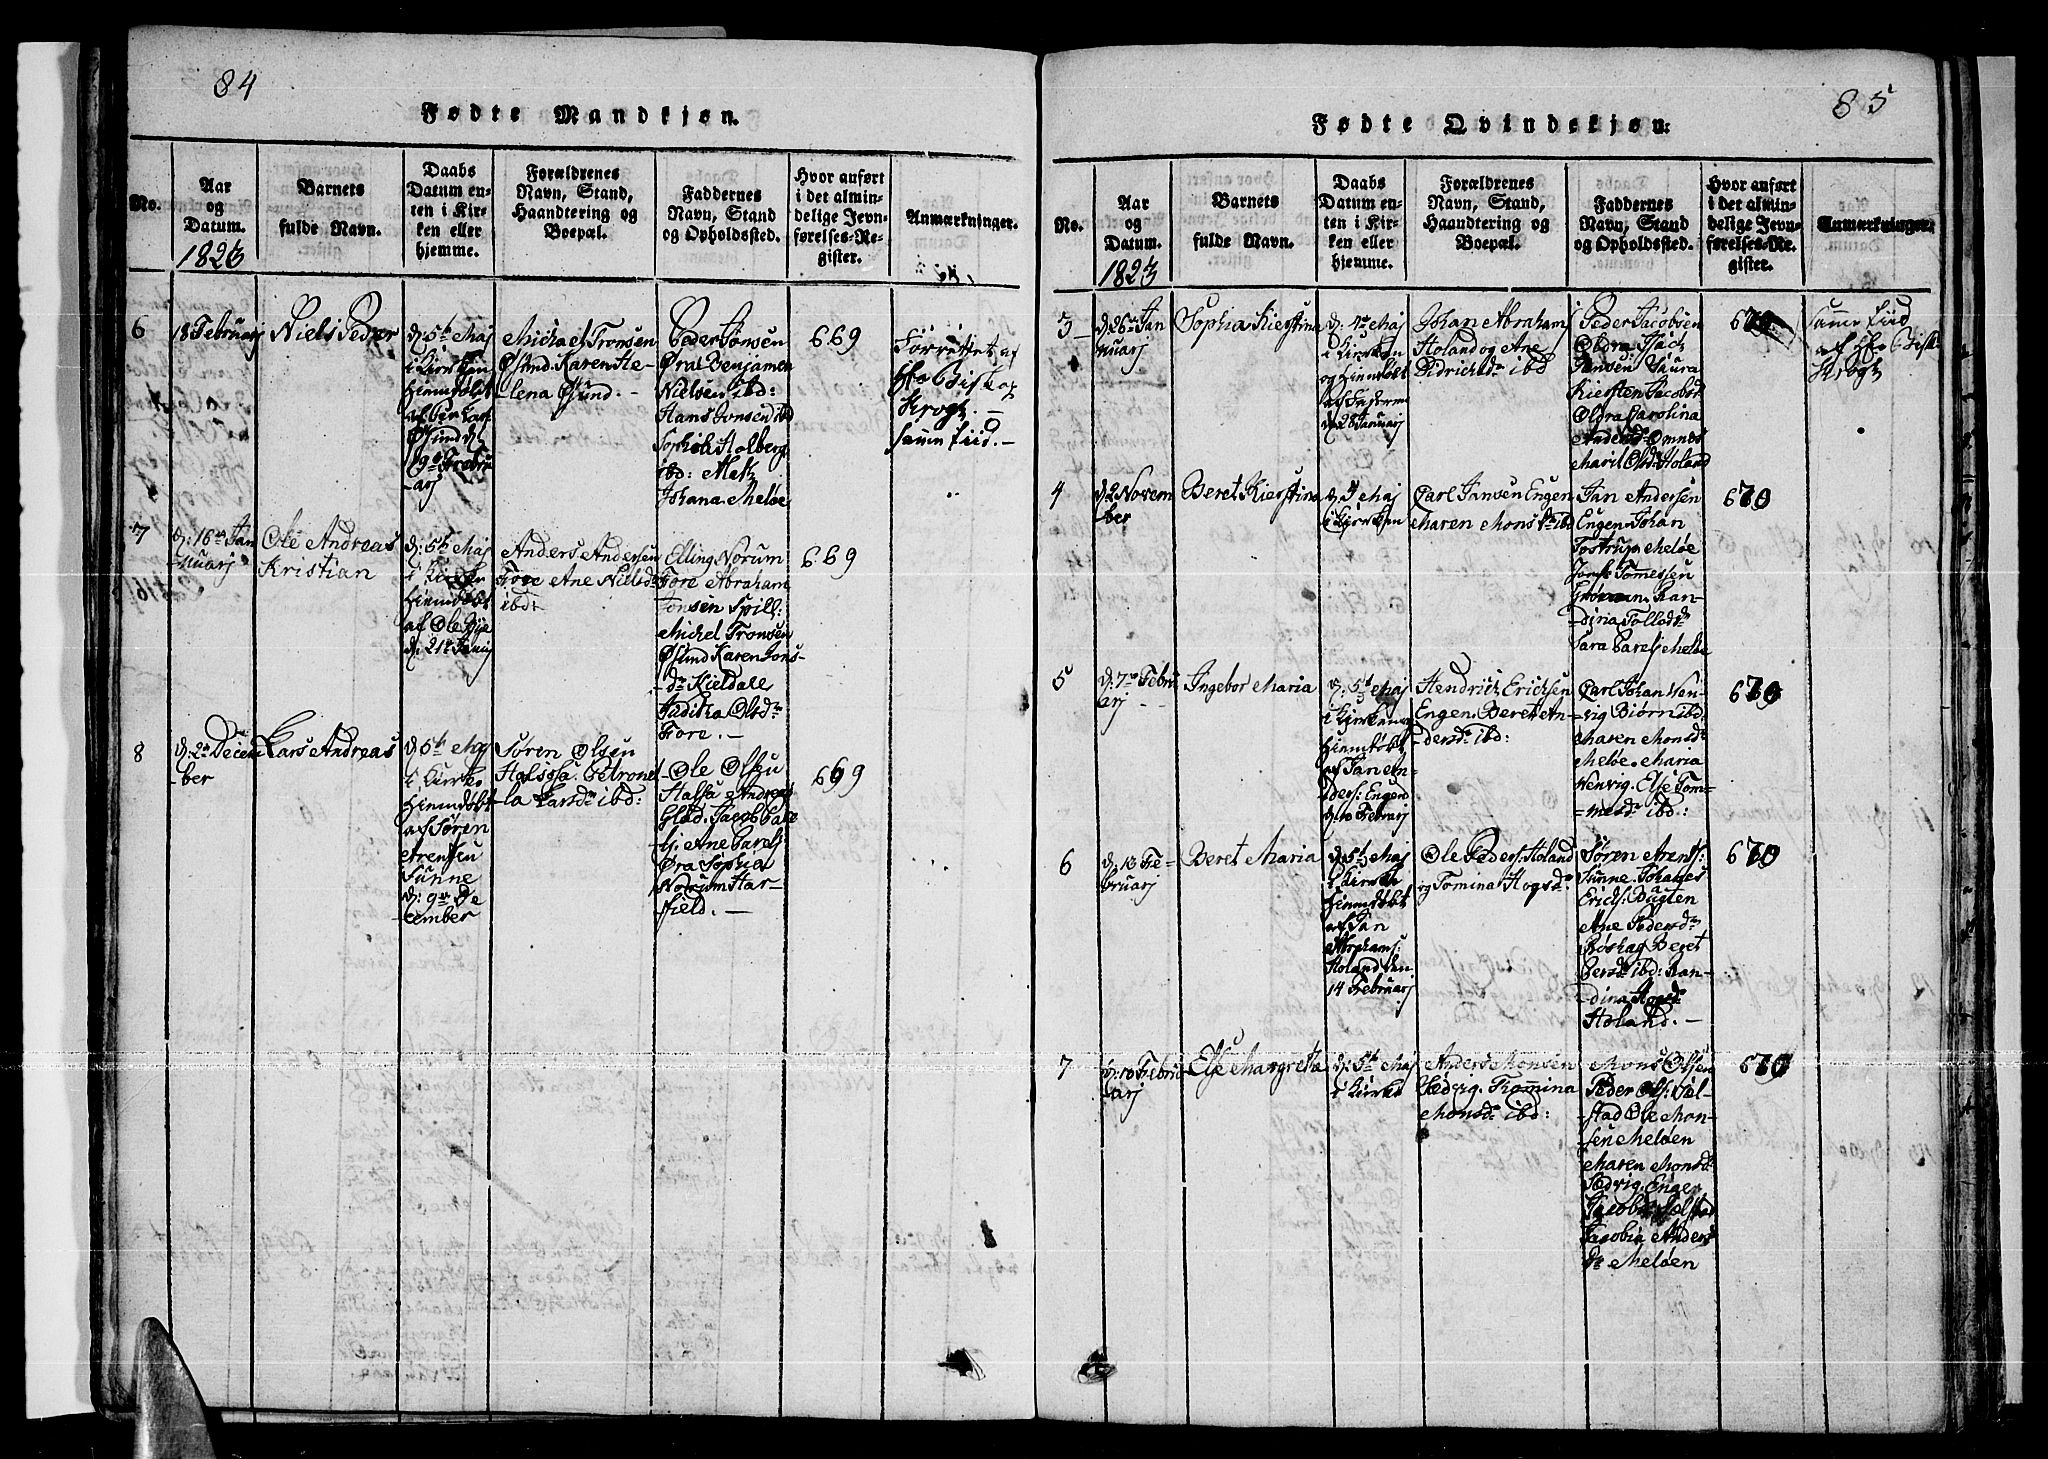 84
Fødte Mandkjøn.
No.
Aar
og
Datum.
1823
Barnets
fulde Navn.
Daabs
Datum en-
ten i Kir-
ken eller
hjemme.
Forældrenes
Navn, Stand,
Haandtering og
Boepæl.
Faddernes
Navn, Stand
og Opholdssted.
Hvor anført
i det almin-
delige Jevn-
førelses-Re-
gister.
Anmærkninger.
6
18 Februarj
Niels Peder
d: 5te Maj
i Kirken
Hiemdøbt
Øsund d.
9de Febru
arj
Michael Tronsen
Øsund Karen He-
lena Øsund. -
Peder Jonsen
Øra Benjamen
Nielsen ibd:
Hans Jonsen ibd
Sophia Holberg
ibd: Mette
Johana Meløe
669
Forrettet af
Hr Biskop
Krogh -
samme tiid. -
7
d: 16de Jan
nuarj
Ole Andreas
Kristian
d: 5te Maj
i Kirken
Hiemdøbt
af Ole Bye
d. 21de Januj
Anders Andersen
Fore Ane Nielsdr
ibd:
Elling Norum
Fore Abraham
Jonsen Spill:
Michel Tronsen
Øsund Karen Jons-
dr Kieldale
Judithta Olsdr
Fore. -
669
8
d. 2de Decem
ber
Lars Andreas
d 5te Maj
i Kirke
Hiemdøbt
af Søren
Arentsen
Sunne
d: 9de De
cember
Søren Olsen
Halsosa. Petronel
la Larsdr ibd:
Ole Olsen
Halsa Andreas
Glad. Jacob
Ane
Øra Sophia
Norum Har-
field. -
669
85
Fødte Qvindekjøn:
No.
Aar
og
Datum.
1823
Barnets
fulde Navn.
Daabs
Datum en-
ten i Kir-
ken eller
hjemme.
Forældrenes
Navn, Stand,
Haandtering og
Boepæl.
Faddernes
Navn, Stand
og Opholdssted.
Hvor anført
i det almin-
delige Jevn-
førelses-Re-
gister.
Anmærkninger.
3
d: 26de Jan
nuarj
Sophia Kierstina
d: 4de Maj
i Kirken
og Hiemdøbt
d 28 Januarj
Johan Abraham
Holand og Ane
Didrichsdr ibd
Peder Jacobsen
Oldra
Jansen Saura
Kiersten Jacobsdr
Oldra Carolina
Andersdr Omnes
Marit Olsdr Holand
670
samme tiid
af Hr Bisk
Krogh
4
d 2 Novem
ber
Beret Kierstina
d 5 Maj
i Kirken
Carl Jansen Engen
Maren Monsdr ibd
Jan Andersen
Engen Johan
Tostrup Meløe
Tomessen
Grønnen. Ran-
dina Tollesdr
Sara Meløe
670
5
d: 7de Febru
arj
Ingebor Maria
d: 5te Maj
i Kirken
Hiemdøbt
af Jan An-
ders: Engen
d. 10 Februarj
Hendrich Erichsen
Engen. Beret An-
dersdr ibd:
Carl Johan Wen-
vig Biørn ibd.
Maren Monsdr
Meløe. Maria
Wenvig. Else Tom-
mesdr ibd:
670
6
d. 13 Fe-
bruarj
Beret Maria
d: 5te Maj
i Kirke
Hiemdøbt
af Jan
Abrahams:
Holand den
14 Februarj
Ole Peders: Holand
og Tomina Hogsdr
Søren Arents:
Sunne. Johanes
Erichs:
Ane Pedersdr
Beret
ibd: Ran-
dina Hogsdr
Holand. -
670
7
d: 10 Febru
arj
Else Margreta
d: 5te Maj
i Kirke
Anders Monsen
Sædvig. Tromina
Monsdr ibd:
Mons Olsen
Peder Ols: Sæl-
stad Ole Mon-
sen Meløen
Maren Monsdr
Sædvig. Enger
Jacobs Sælstad
Jacobia Anders
Dr Meløen
670